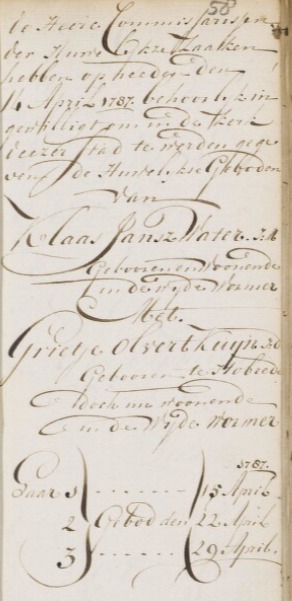 58
de Heere Commissarissen
der Huwelijkze Zaaken
hebben op heeden den
14 April 1787. behoorlijk in
gewilligt om in de Kerk
deezer Stad te werden gege
ven de Huwelijkse Geboden
Van
Klaas Jansz Water. J:M
Gebooren en Woonende
in de Wyde Wormer
Met.
Grietje Olvert Kuyn J:D
Gebooren te
doch nu woonende
in de Wyde Wormer
1787.
1 15 April
2 Gebod den 22 April
3 29 April.